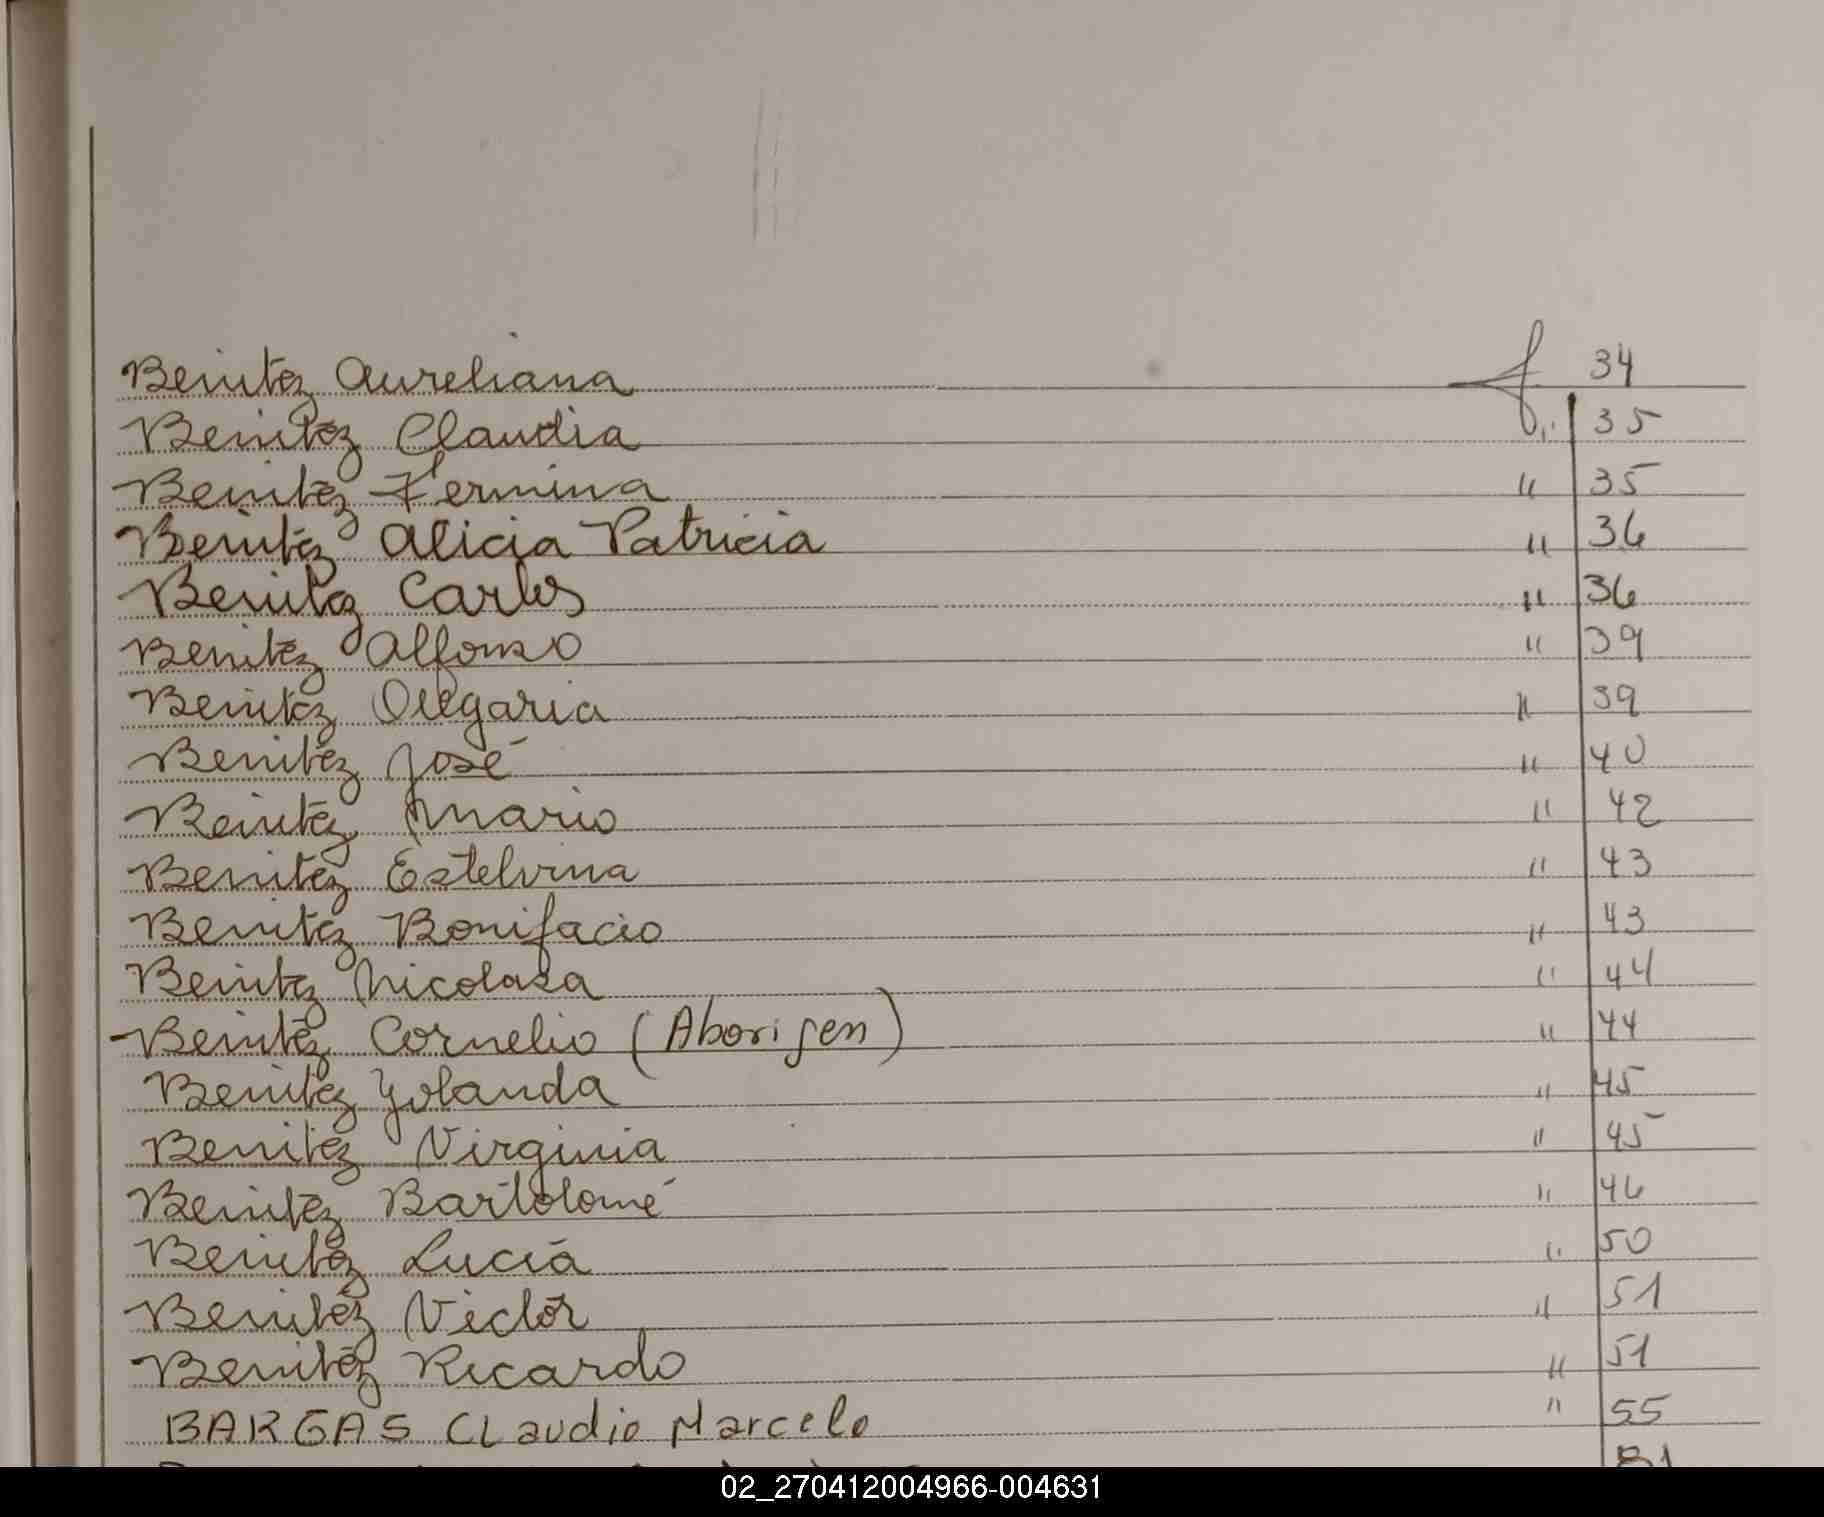 Benitez Aureliana f 34
Benitez Claudia " 35
Benitez Fermina " 35
Benitez Alicia Patricia " 36
Benitez Carlos " 36
Benitez Alfonso " 39
Benitez Olegaria " 39
Benitez José " 40
Benitez Mario " 42
Benitez Estelvina " 43
Benitez Bonifacio " 43
Benitez Nicolasa " 44
-Benitez Cornelio (Aborigen) " 44
Benitez Yolanda " 45
Benitez Virginia " 45
Benitez Bartolomé " 46
Benitez Lucia " 50
Benitez Victor " 51
Benitez Ricardo " 51
BARGAS Claudio Marcelo " 55
02_270412004966-004631